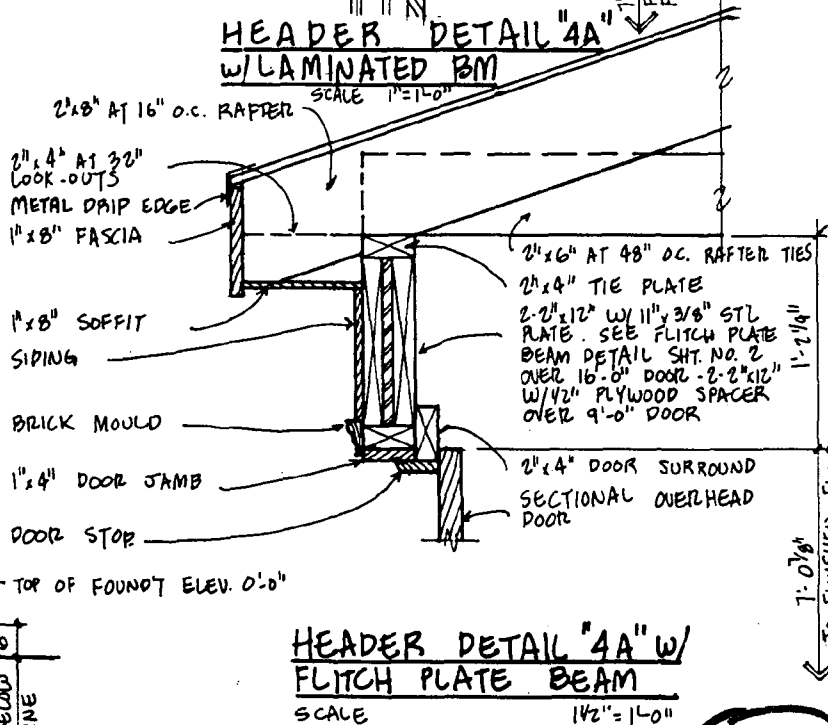 HEADER DETAIL "4A"
W/LAMINATED BM
SCALE 1"=1'-0"
2"x8" AT 16" O.C. RAFTER
2"x4" AT 32"
LOOK-OUTS
METAL DRIP EDGE
1"x8" FASCIA
1"x8" SOFFIT
SIDING
BRICK MOULD
1"x4" DOOR JAMB
DOOR STOP
TOP OF FOUND'T ELEV. 0'-0"
2"x6" AT 48" O.C. RAFTER TIES
2"x4" TIE PLATE
2-2"x12" W/ 11"x3/8" STL
PLATE. SEE FLITCH PLATE
BEAM DETAIL SHT. NO. 2
OVER 16'-0" DOOR -2-2"x12"
W/1/2" PLYWOOD SPACER
OVER 9'-0" DOOR
2"x4" DOOR SURROUND
SECTIONAL OVERHEAD
DOOR
1'-2 1/4"
7'-0 7/8"
HEADER DETAIL "4A" W/
FLITCH PLATE BEAM
SCALE 1 1/2"=1'-0"